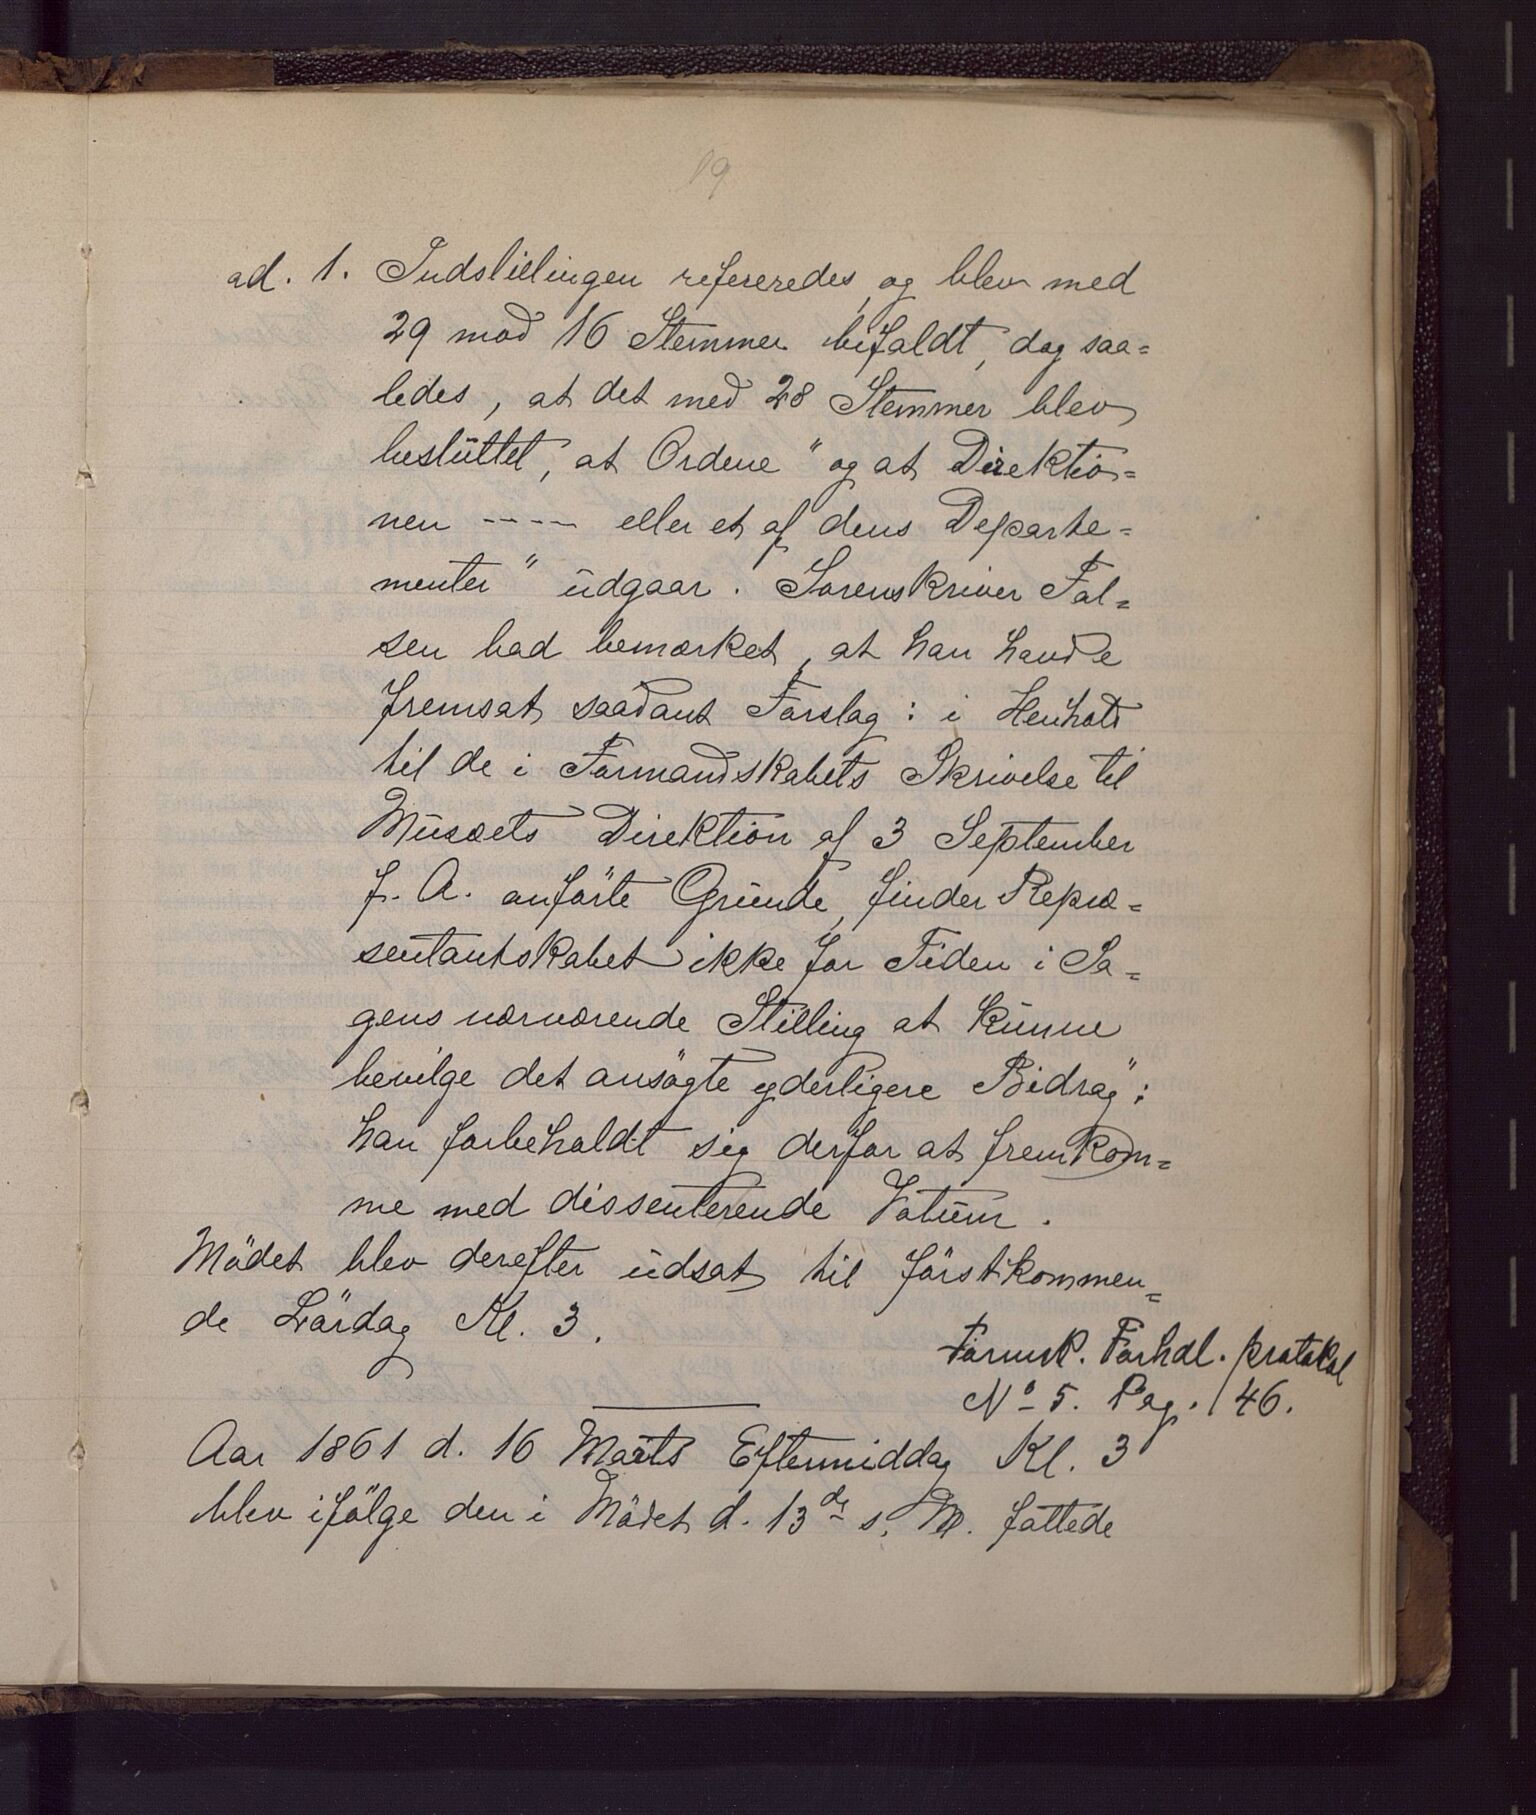 19
ad. 1. Indstillingen refereredes, og blev med
29 mod 16 Stemmer bifaldt, dog saa=
ledes, at det med 28 Stemmer blev
besluttet, at Ordene "og at Direktio=
nen ---- eller et af dens Departe=
menter" udgaar. Sorenskriver Fal=
sen bad bemærket, at han havde
fremsat saadant Forslag: i Henhold
til de i Formandskabets Skrivelse til
Musæets Direktion af 3 September
f. A. anförte Grunde, finder Repræ=
sentantskabet ikke for Tiden i Sa=
gens nærværende Stilling at kunne
bevilge det ansögte yderligere Bidrag";
han forbeholdt sig derfor at fremkom=
me med dissenterende Votum.
Mödet blev derefter udsat til förstkommen=
de Lördag Kl. 3.
Formsk. Forhdl. protokol
No 5. Pag. 146.
Aar 1861 d. 16 Marts Eftermiddag Kl. 3
blev ifölge den i Mödet d. 13de s. M. fattede